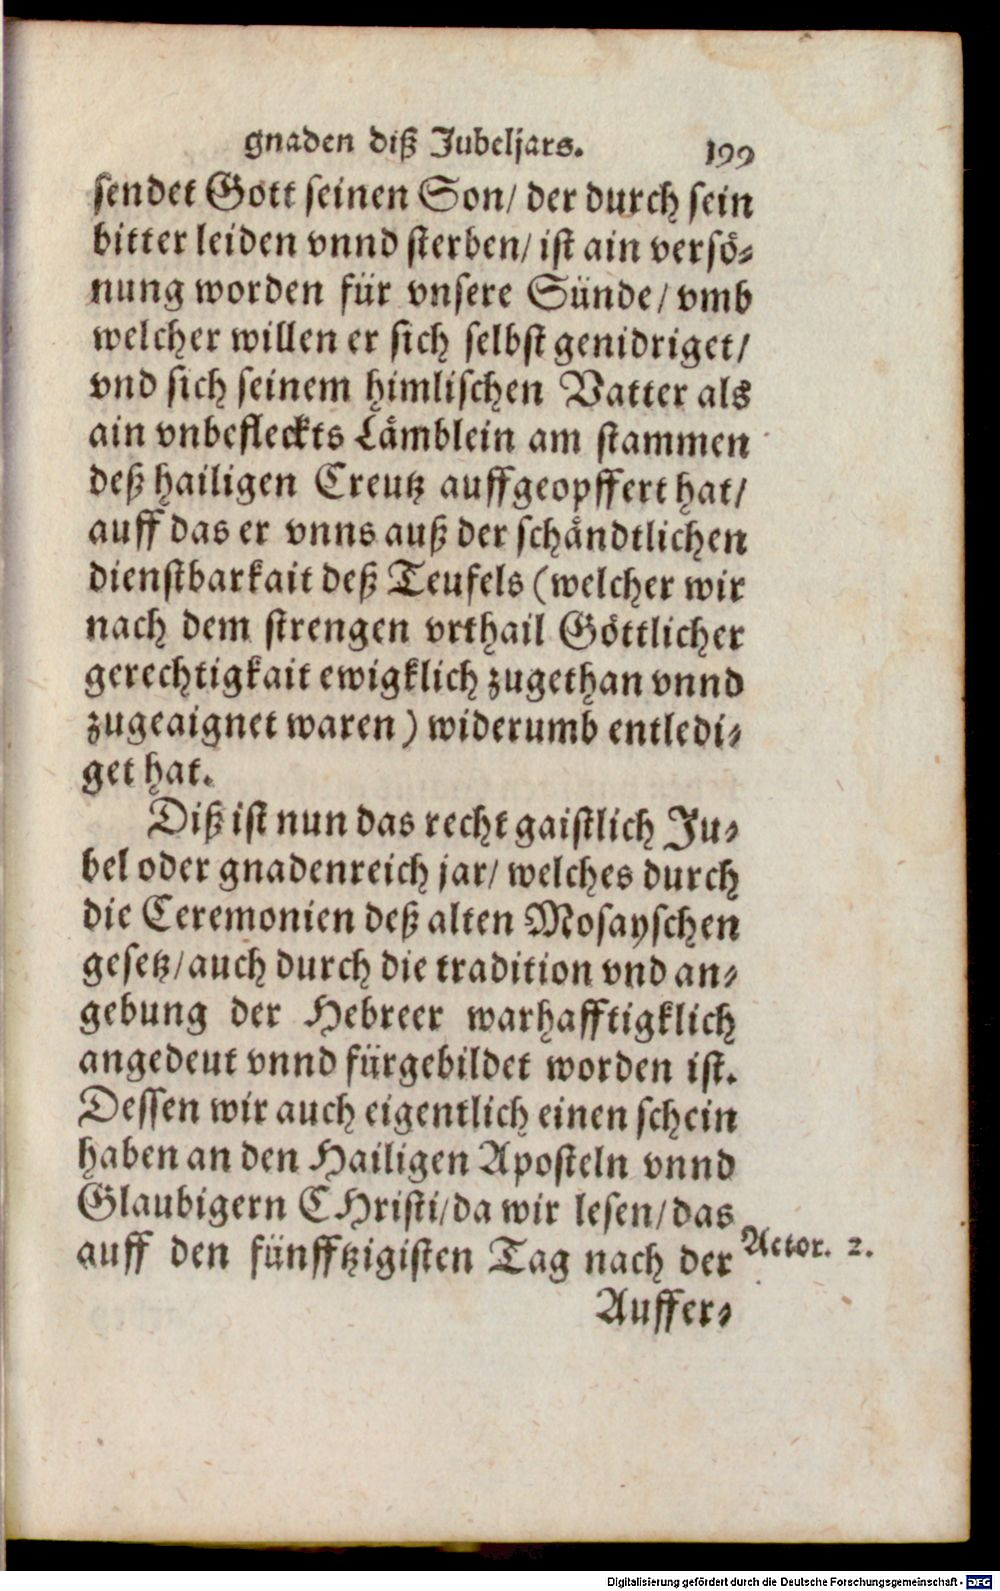 gnaden diß Jubeljars. 199
sendet Gott seinen Son/ der durch sein
bitter leiden vnnd sterben/ ist ain versö⸗
nung worden für vnsere Sünde/ vmb
welcher willen er sich selbst genidriget/
vnd sich seinem himlischen Vatter als
ain vnbeflecktes Lämblein am stammen
deß hailigen Creutz auffgeopffert hat/
auff das er vnns auß der schändtlichen
dienstbarkait deß Teufels (welcher wir
nach dem strengen vrthail Göttlicher
gerechtigkait ewigklich zugethan vnnd
zugeaignet waren) widerumb entledi⸗
get hat.
Diß ist nun das recht gaistlich Ju⸗
bel oder gnadenreich jar/ welches durch
die Ceremonien deß alten Mosayschen
gesetz/ auch durch die tradition vnd an⸗
gebung der Hebreer warhafftigklich
angedeut vnnd fürgebildet worden ist.
Dessen wir auch eigentlich einen schein
haben an den Hailigen Aposteln vnnd
Glaubigern CHristi/ da wir lesen/ das
auff den fünfftzigisten Tag nach der Actor. 2.
Auffer⸗
Digitalisierung gefördert durch die Deutsche Forschungsgemeinschaft - DFG